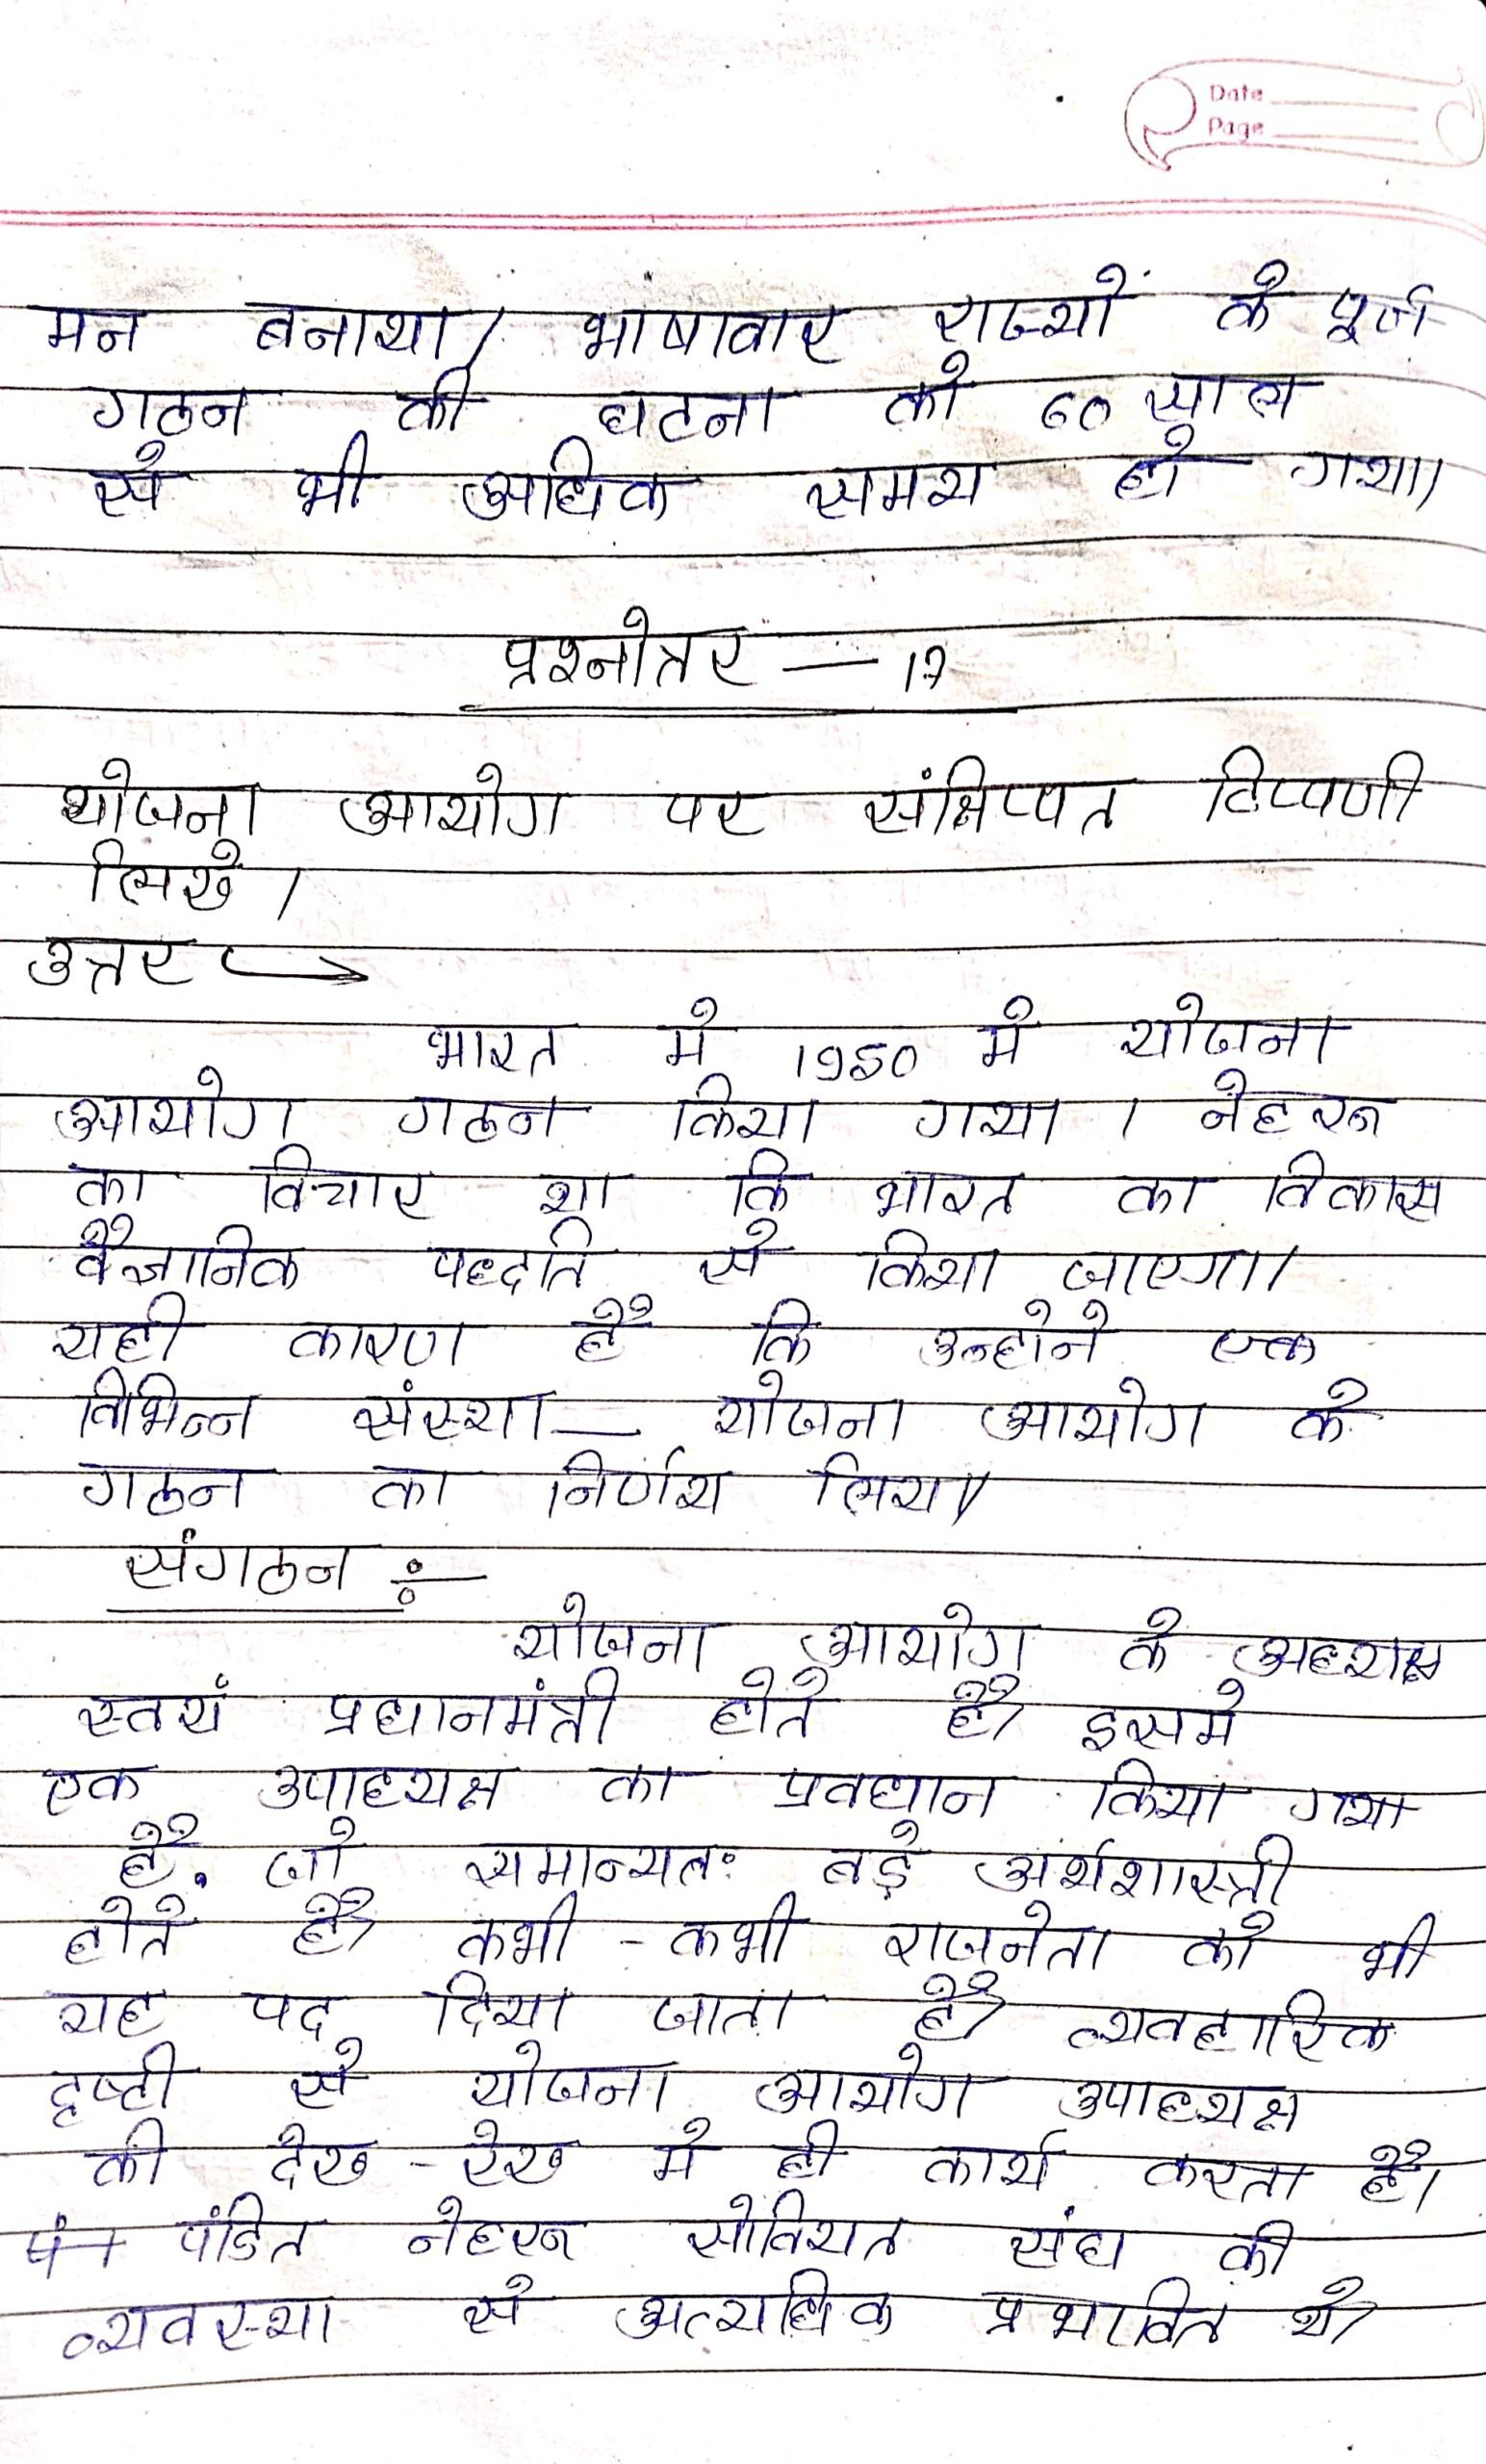 Date
Page
मन बनाया। भाषावार राज्यों के पूर्ण
गठन की घटना को 60 साल
से भी अधिक समय हो गया।
प्रश्नोत्तर — 17
योजना आयोग पर संक्षिप्पत टिप्पणी
लिखें।
उत्तर →
भारत में 1950 में योजना
आयोग गठन किया गया। नेहरू
का विचार था कि भारत का विकास
वैज्ञानिक पध्दति से किया जाएगा।
यही कारण है कि उन्होने एक
विभिन्न संस्था — योजना आयोग के
गठन का निर्णय लिया।
संगठन :—
योजना आयोग के अध्यक्ष
स्वयं प्रधानमंत्री होते है। इसमे
एक उपाध्यक्ष का प्रवधान किया गया
है. जो समान्यतः बड़े अर्थशास्त्री
होते है। कभी - कभी राजनेता को भी
यह पद दिया जाता है। व्यवहारिक
दृष्टी से योजना आयोग उपाध्यक्ष
की देख - रेख मे ही कार्य करता है।
पंडित नेहरू सोवियत संघ की
व्यवस्था से अत्याधिक प्रभावित थे।